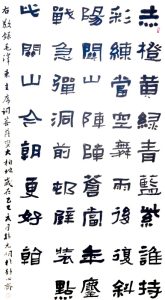 赤橙黃綠青藍紫誰持
彩練當空舞雨後復斜
陽關山陣陣蒼當年鏖
戰急彈洞前村壁裝點
此關山今朝更好看
右敬錄毛澤東主席詞菩薩蠻大柏地歲在